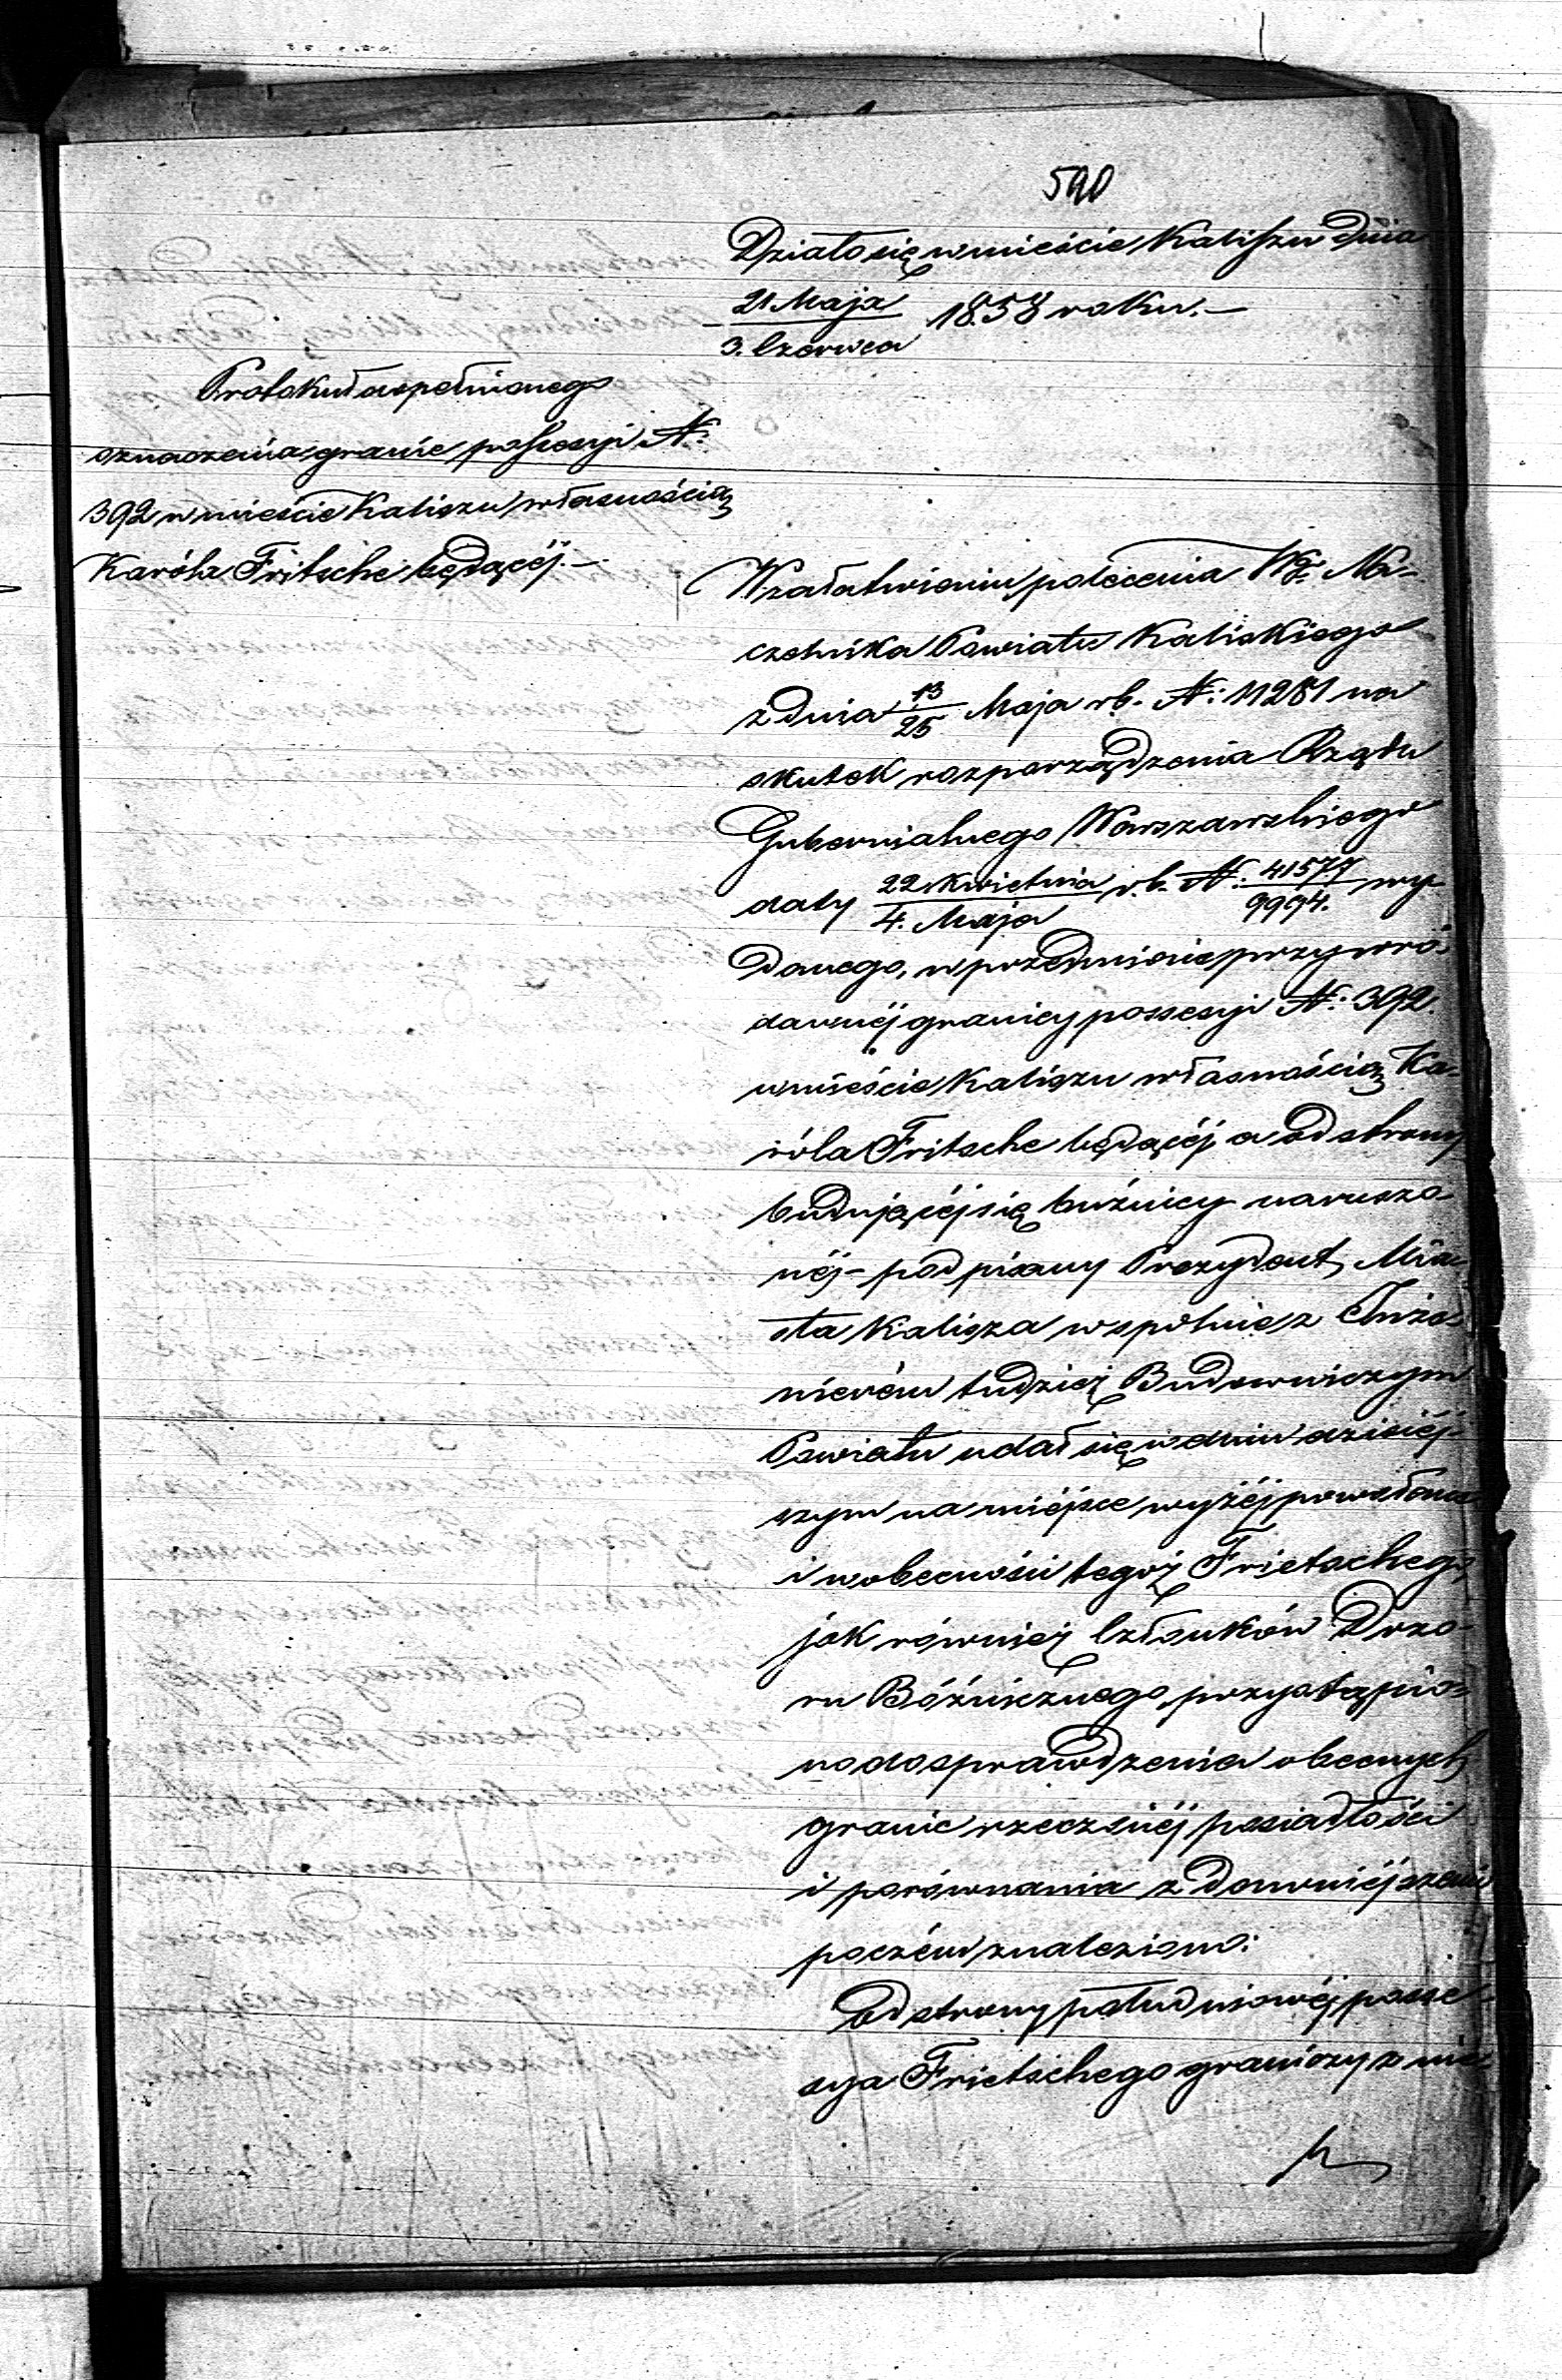 590
Działo się w mieście Kaliszu Dnia
21 Maja / 3. Czerwca 1858 roku.—
Protokuł dopełnionego
oznaczenia granic possesyi N:
392 w mieście Kaliszu własnością
Karóla Fritsche będącéj.—
W załatwieniu polecenia Wgo Na-
czelnika Powiatu Kaliskiego
z dnia 13/25 Maja rb. N: 11281 na
skutek rozporządzenia Rządu
Gubernialnego Warszawskiego
daty 22 Kwietnia / 4. Maja r.b. N: 41577/9994. wy-
danego, w przedmiocie przywró-
dawnéj granicy possesyi N: 392.
w mieście Kaliszu własnością Ka-
róla Fritsche będącéj a od strony
budującéj się buźnicy narusza-
néj – podpisany Prezydent Mia-
sta Kalisza wspólnie z Inże-
nierém tudzież Budowniczym
Powiatu udał się w dniu dzisiéj-
szym na miéjsce wyżéj powołane
i w obecności tegoż Frietschego,
jak równiéż Członków Dozo-
ru Bóźnicznego, przystąpio-
no do sprawdzenia obecnych
granic rzeczonéj posiadłości
i porównania z dawniéjszemi
poczém znaleziono:
Od strony południowéj posse-
sya Frietschego graniczy z nie-